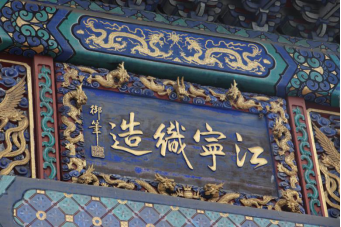 江寧織造
御筆